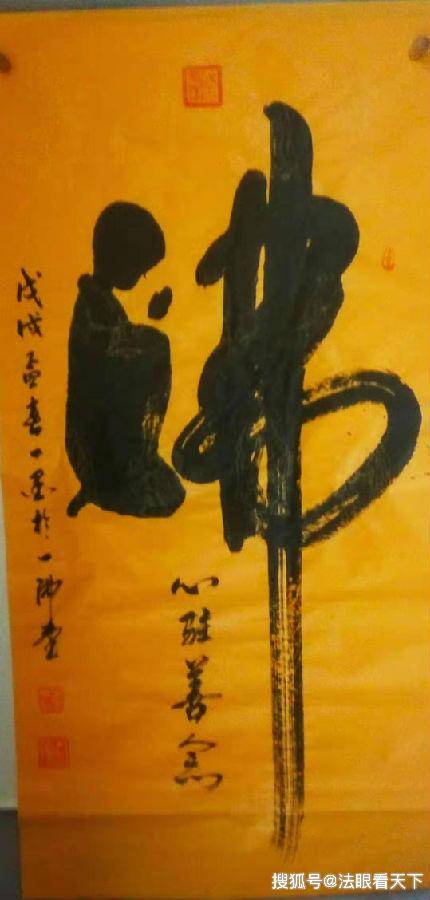 佛
心善念
戊戌孟春一墨於一佛堂
搜狐号@法眼看天下